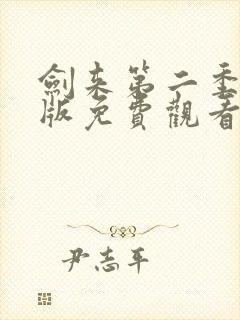 劍来第二季
版免費觀看
尹志平